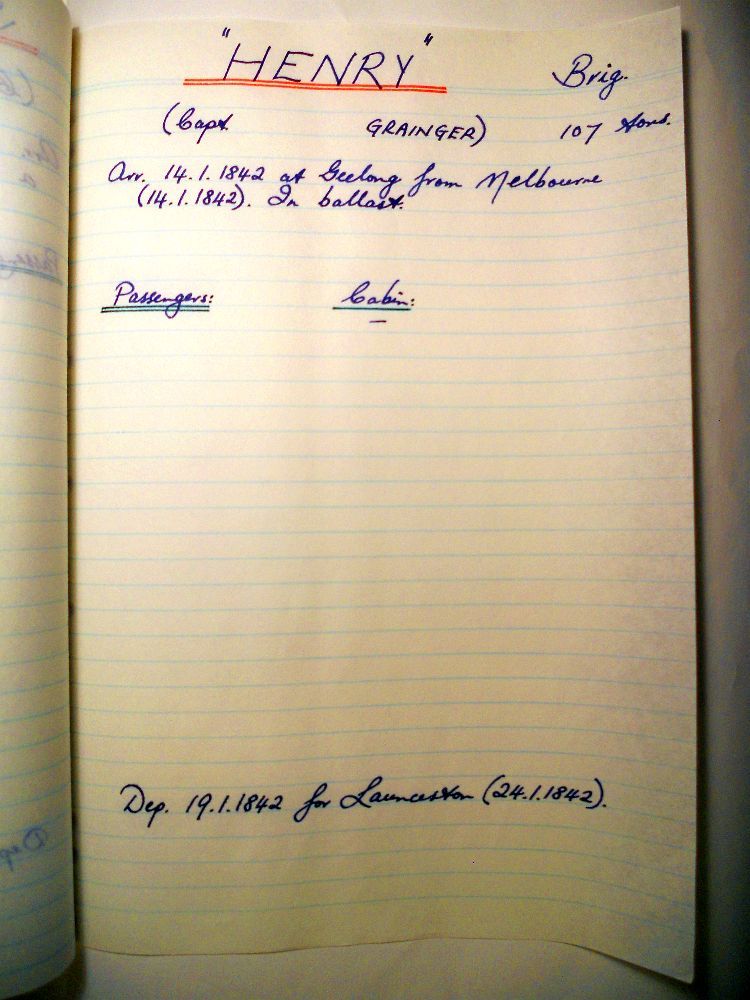 "HENRY" Brig.
(Capt. GRAINGER) 107 tons.
Arr. 14.1.1842 at Geelong from Melbourne
(14.1.1842). In ballast.
Passengers: Cabin:
—
Dep. 19.1.1842 for Launceston (24.1.1842).